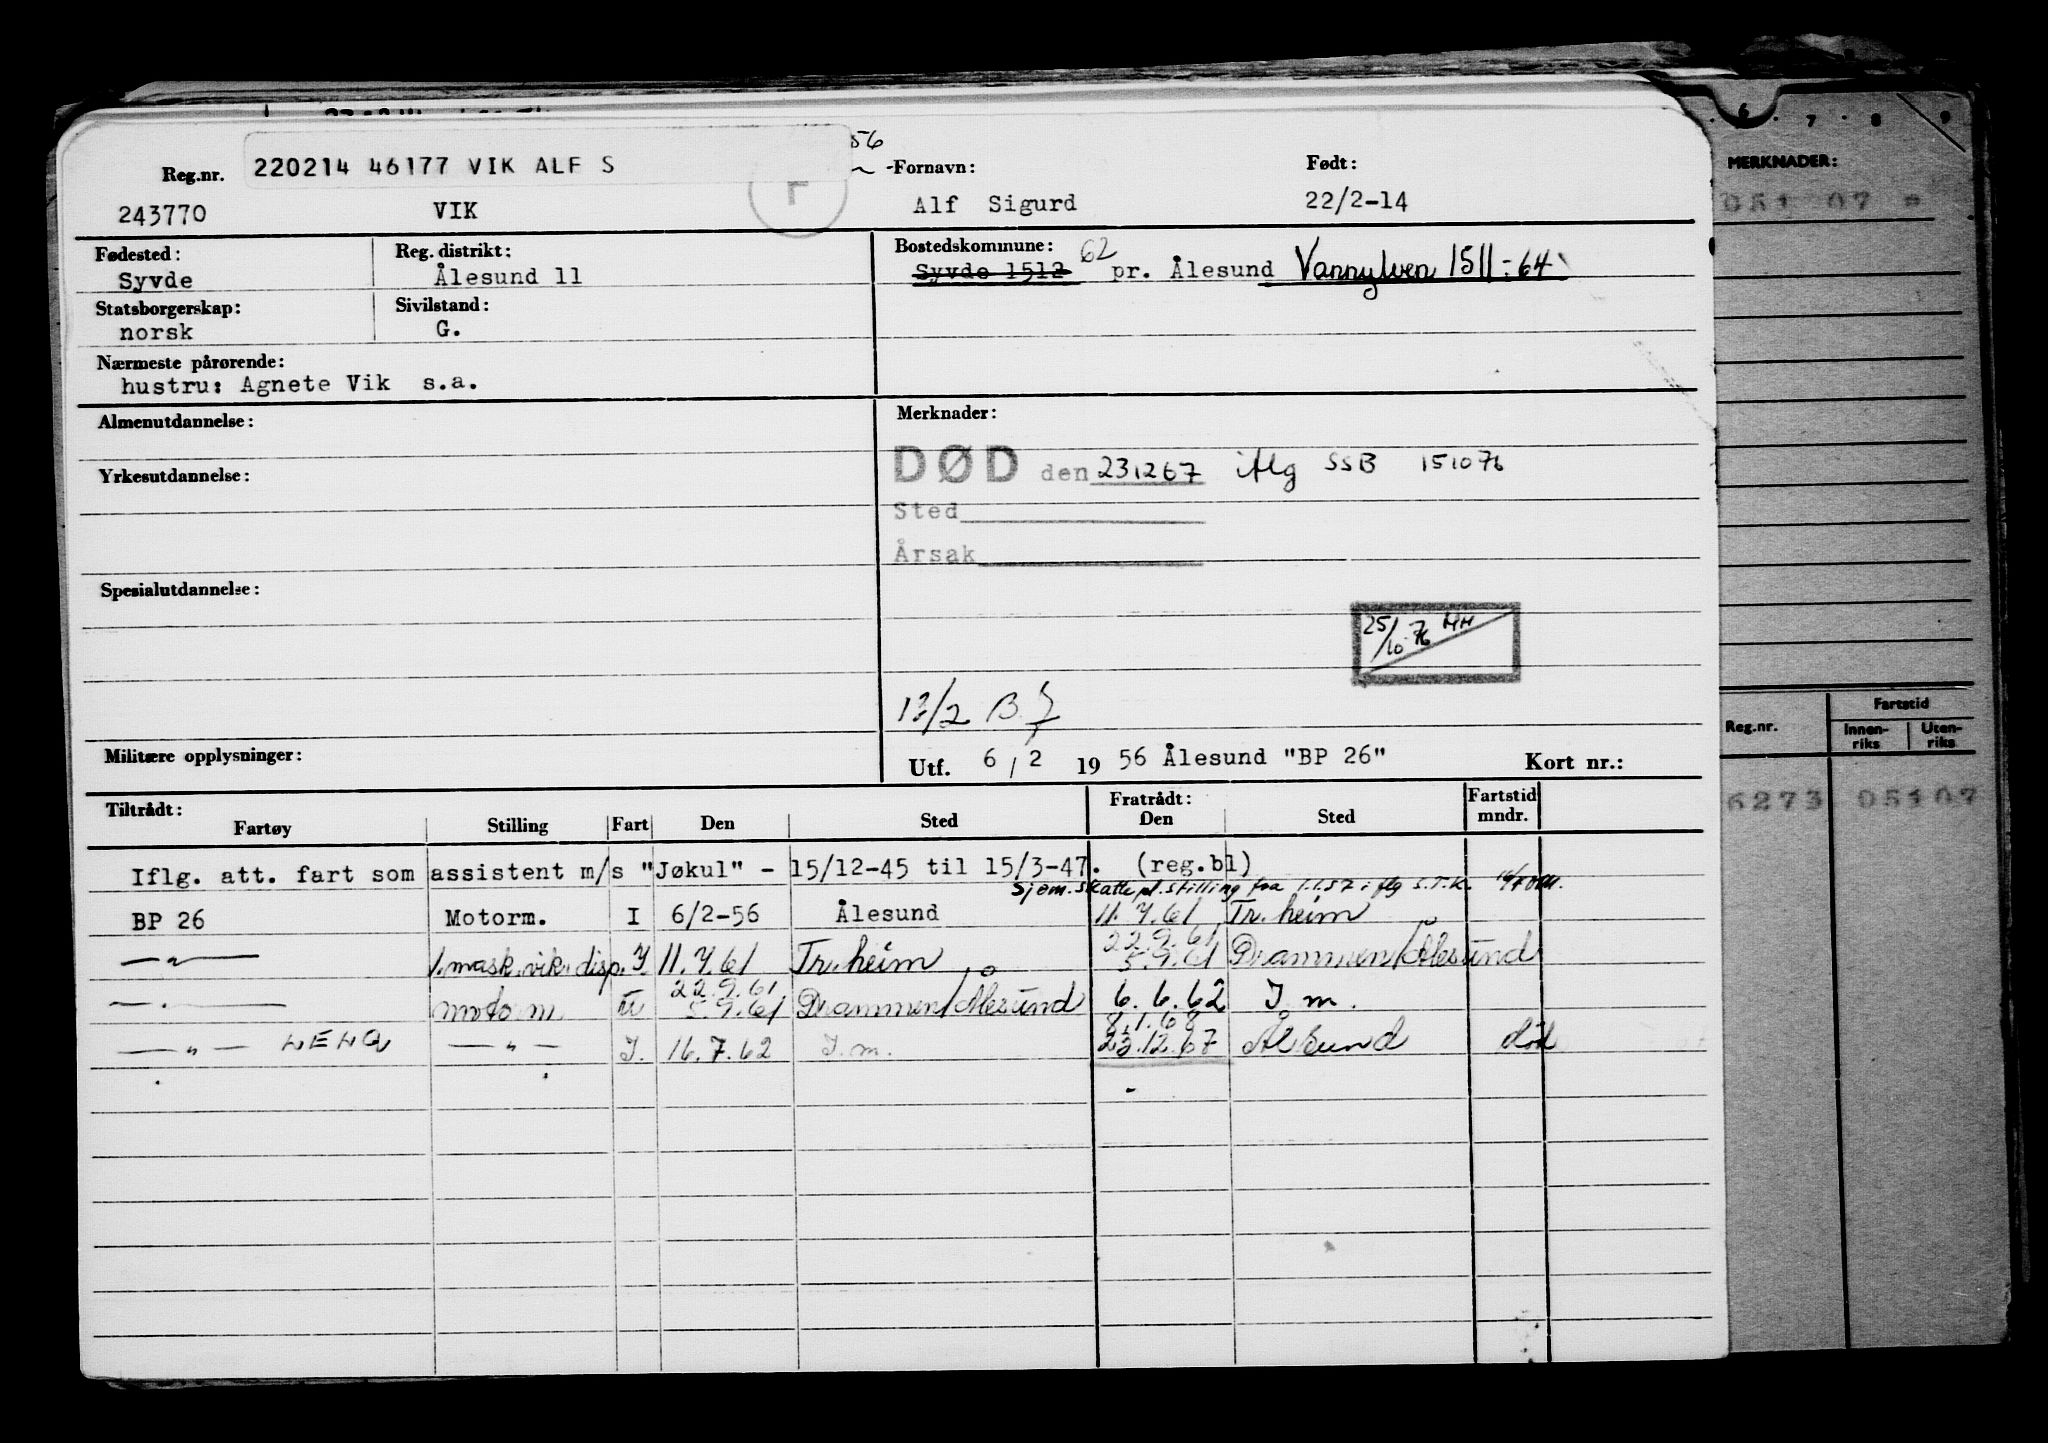 56
Reg.nr. 220214 46177 VIK ALF S Fornavn: Født:
243770 VIK F Alf Sigurd 22/2-14
Fødested: Reg. distrikt: Bostedskommune: 62
Syvde Ålesund 11 Syvde 1512 pr. Ålesund Vannylven 1511-64
Statsborgerskap: Sivilstand:
norsk G.
Nærmeste pårørende:
hustru: Agnete Vik s.a.
Almenutdannelse: Merknader:
DØD den 231267 iflg SSB 151076
Yrkesutdannelse:
Sted
Årsak
Spesialutdannelse:
25/10-76 HH
12/2 B
Militære opplysninger: Utf. 6/2 1956 Ålesund "BP 26" Kort nr.:
Tiltrådt: Fratrådt: Fartstid
Fartøy Stilling Fart Den Sted Den Sted mndr.
Iflg. att. fart som assistent m/s "Jøkul" - 15/12-45 til 15/3-47. (reg.bl)
Sjøm.skattepl.stilling fra 1.1.57 iflg S.T.K.
BP 26 Motorm. I 6/2-56 Ålesund 11.7.61 Tr.heim
22.9.61
—"— 1.mask.vik.disp. I 11.7.61 Tr.heim 5.9.61 Drammen/Ålesund
22.9.61
—"— motorm U 5.9.61 Drammen/Ålesund 6.6.62 I.m.
8.1.68
—"— —"— I. 16.7.62 I.m. 23.12.67 Ålesund død
6 7 8 9
MERKNADER:
051 07
Reg.nr. Fartstid
Innen-riks Uten-riks
6273 05107